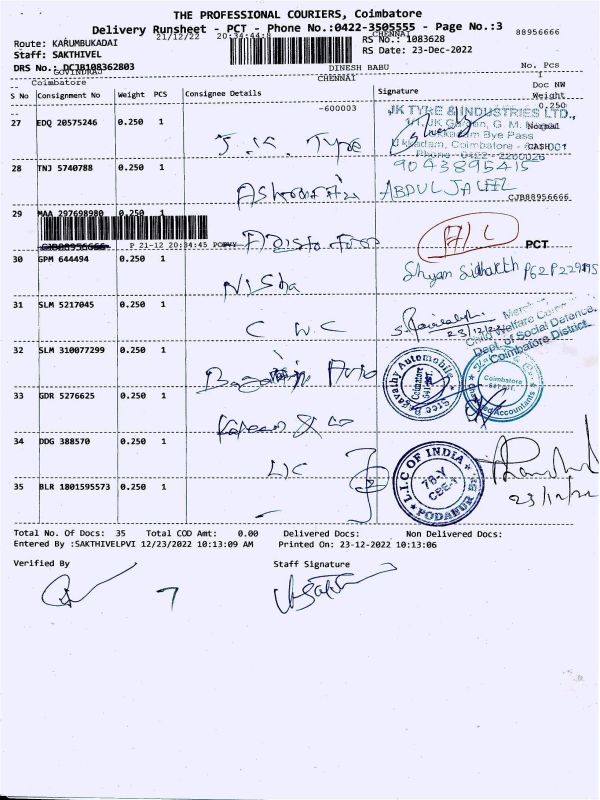 THE PROFESSIONAL COURIERS, Coimbatore
Delivery Runsheet - PCT - Phone No.:0422-3505555 - Page No.:3
88956666
Route: KARUMBUKADAI
21/12/22 20:34:44
CHENNAI
RS No.: 1083628
Staff: SAKTHIVEL
RS Date: 23-Dec-2022
DRS No.: DCJB108362803
GOVINDRAJ
DINESH BABU
No. Pcs
1
Coimbatore
CHENNAI
Doc NW
S No Consignment No Weight PCS Consignee Details Signature Weight
-600003
0.250
27 EDQ 20575246 0.250 1
J.K. Type
JK TYRE & INDUSTRIES LTD.,
Normal
Ukkadam Bye Pass
Ukkadam, Coimbatore - 641001
CASH
Phone 0422 2260026
9043895415
28 TNJ 5740788 0.250 1
ABDUL JALEEL
CJB88956666
29 MAA 297698980 0.250 1
CJB88956666 P 21-12 20:34:45
A/C
PCT
30 GPM 644494 0.250 1
Nisha
Shyam Sidharth
31 SLM 5217045 0.250 1
C.W.C
23/12/22
Child Welfare
Dept. of Social Defence,
Coimbatore District.
32 SLM 310077299 0.250 1
Auto
Bagavathy Automobile
Coimbatore
Coimbatore
Chartered Accountants
33 GDR 5276625 0.250 1
& co
34 DDG 388570 0.250 1
LIC
L.I.C OF INDIA
76-Y
CBE-1
PODANUR Br.
23/12/22
35 BLR 1801595573 0.250 1
Total No. Of Docs: 35 Total COD Amt: 0.00 Delivered Docs: Non Delivered Docs:
Entered By :SAKTHIVELPVI 12/23/2022 10:13:09 AM Printed On: 23-12-2022 10:13:06
Verified By Staff Signature
7